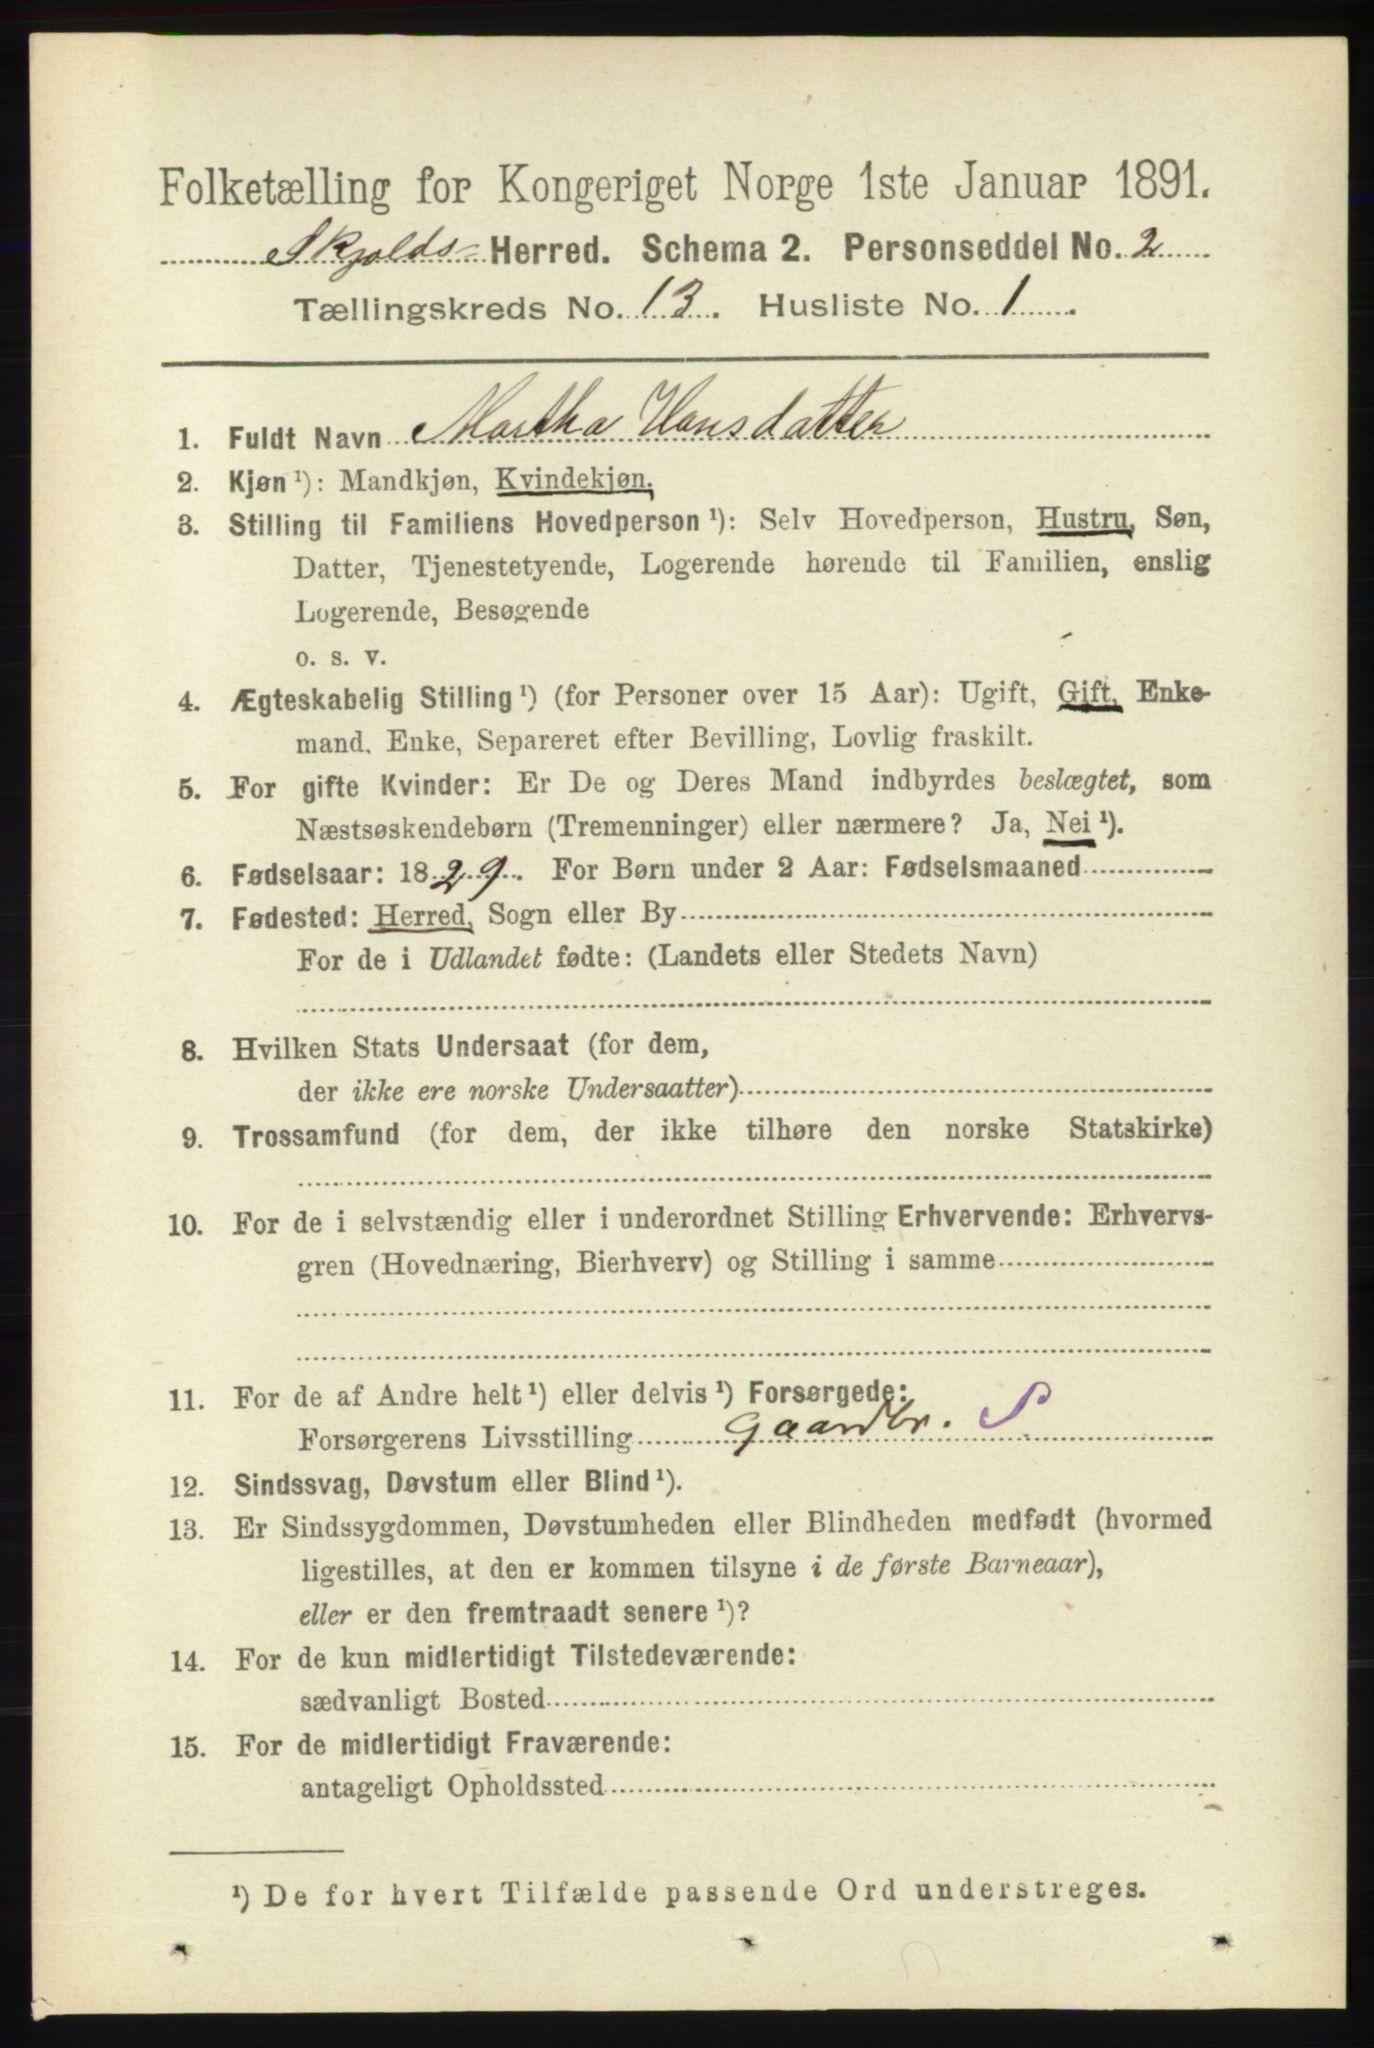 Folketælling for Kongeriget Norge 1ste Januar 1891.
Skjolds Herred. Schema 2. Personseddel No. 2
Tællingskreds No. 13. Husliste No. 1.
1. Fuldt Navn Martha Hansdatter
2. Kjøn ¹): Mandkjøn, Kvindekjøn.
3. Stilling til Familiens Hovedperson ¹): Selv Hovedperson, Hustru, Søn,
Datter, Tjenestetyende, Logerende hørende til Familien, enslig
Logerende, Besøgende
o. s. v.
4. Ægteskabelig Stilling ¹) (for Personer over 15 Aar): Ugift, Gift, Enke-
mand, Enke, Separeret efter Bevilling, Lovlig fraskilt.
5. For gifte Kvinder: Er De og Deres Mand indbyrdes beslægtet, som
Næstsøskendebørn (Tremenninger) eller nærmere? Ja, Nei ¹).
6. Fødselsaar: 1829. For Børn under 2 Aar: Fødselsmaaned
7. Fødested: Herred, Sogn eller By
For de i Udlandet fødte: (Landets eller Stedets Navn)
8. Hvilken Stats Undersaat (for dem,
der ikke ere norske Undersaatter)
9. Trossamfund (for dem, der ikke tilhøre den norske Statskirke)
10. For de i selvstændig eller i underordnet Stilling Erhvervende: Erhvervs-
gren (Hovednæring, Bierhverv) og Stilling i samme
11. For de af Andre helt ¹) eller delvis ¹) Forsørgede:
Forsørgerens Livsstilling Gaardbr. S
12. Sindssvag, Døvstum eller Blind ¹).
13. Er Sindssygdommen, Døvstumheden eller Blindheden medfødt (hvormed
ligestilles, at den er kommen tilsyne i de første Barneaar),
eller er den fremtraadt senere ¹)?
14. For de kun midlertidigt Tilstedeværende:
sædvanligt Bosted
15. For de midlertidigt Fraværende:
antageligt Opholdssted
¹) De for hvert Tilfælde passende Ord understreges.